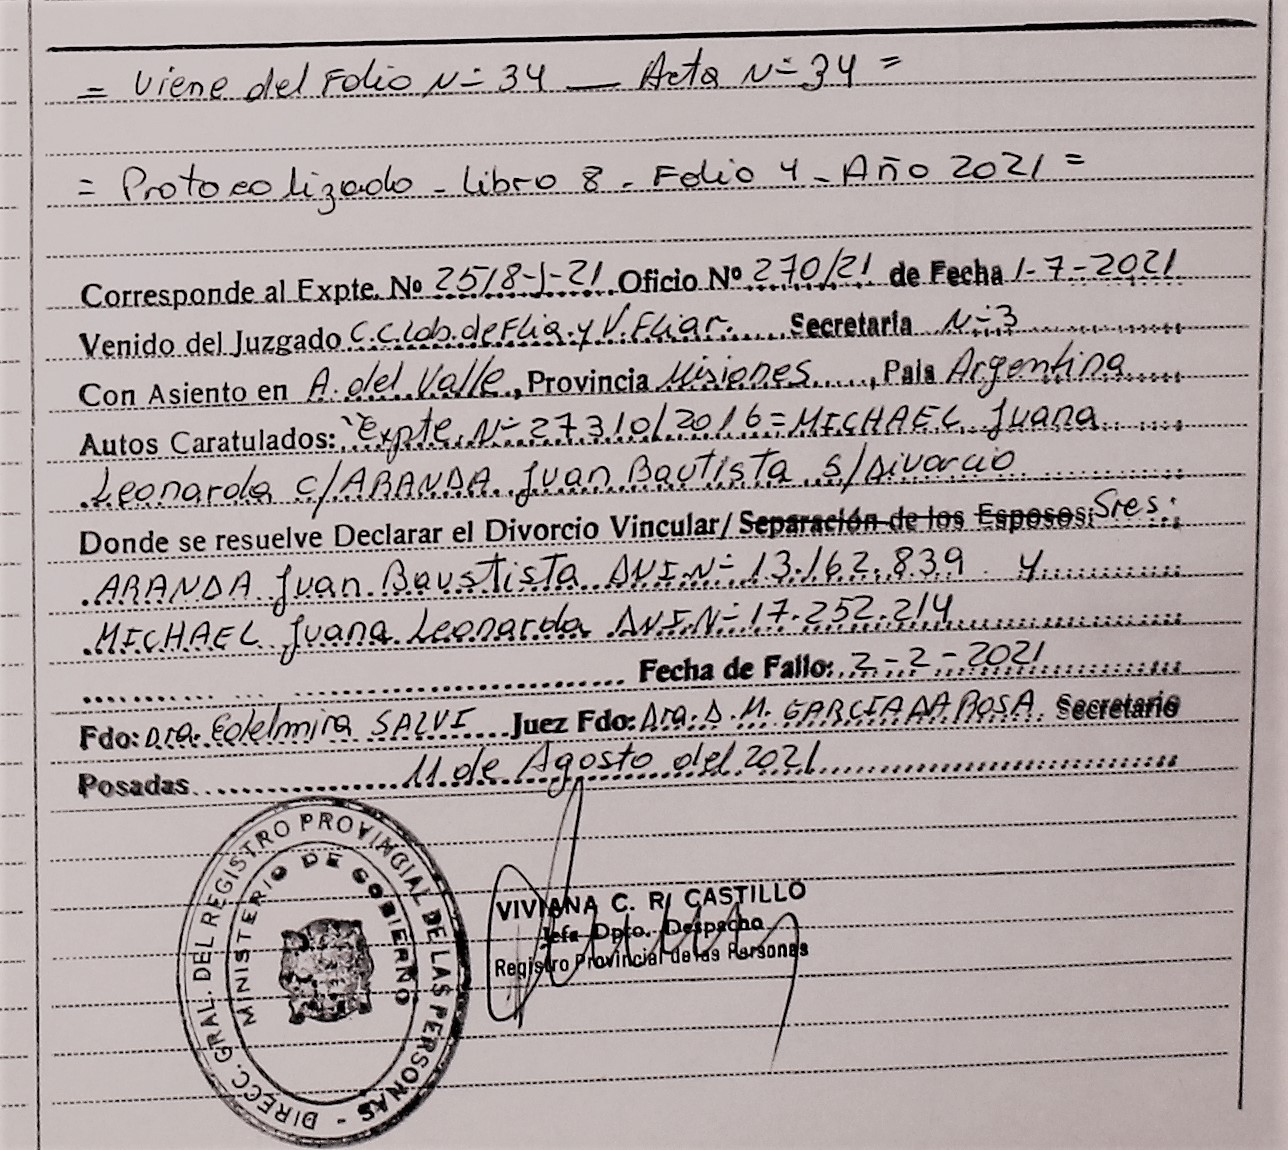 = Viene del Folio N= 34 — Acta N= 34 =
= Protocolizado - Libro 8 - Folio 4 - Año 2021 =
Corresponde al Expte. Nº 2518-J-21 Oficio Nº 270/21 de Fecha 1-7-2021
Venido del Juzgado C.C. Lab. de Flia. y V. Fliar. Secretaria N=3
Con Asiento en A. del Valle, Provincia Misiones, Pais Argentina
Autos Caratulados: "Expte. N= 27310/2016 = MICHAEL Juana
Leonarda C/ARANDA Juan Bautista S/Divorcio
Donde se resuelve Declarar el Divorcio Vincular/ Separación de los Esposos: Sres:
ARANDA Juan Baustista DNI.N= 13.162.839 y
MICHAEL Juana Leonarda DNI.N= 17.252.214
Fecha de Fallo: 2-2-2021
Fdo: Dra. Edelmira SALVI Juez Fdo: Dra. D. M. GARCIA DA ROSA Secretario
Posadas 11 de Agosto del 2021
DIRECC. GRAL. DEL REGISTRO PROVINCIAL DE LAS PERSONAS -
MINISTERIO DE GOBIERNO
VIVIANA C. R. CASTILLO
Jefa Dpto. Despacho
Registro Provincial de las Personas